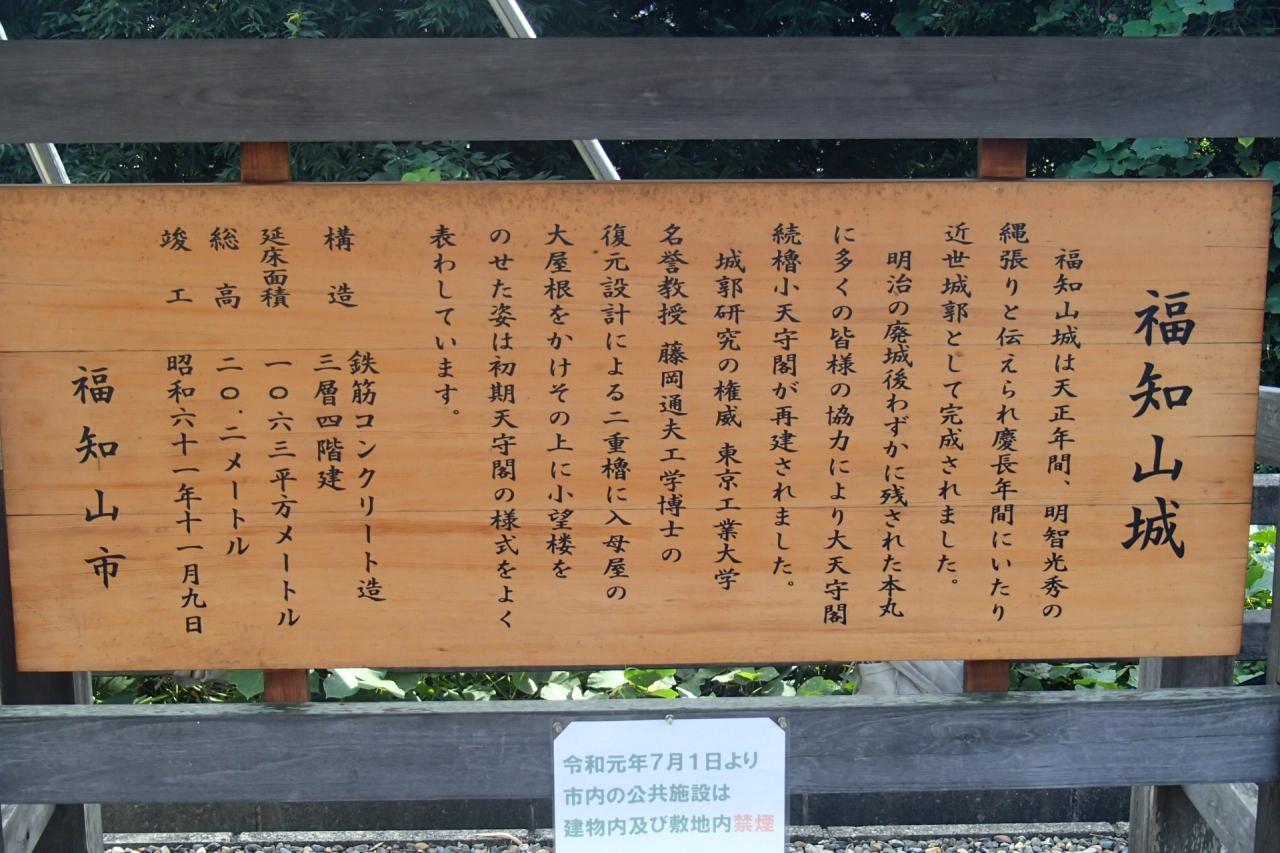 福知山城
福知山城は天正年間、明智光秀の
縄張りと伝えられ慶長年間にいたり
近世城郭として完成されました。
明治の廃城後わずかに残された本丸
に多くの皆様の協力により大天守閣
続櫓小天守閣が再建されました。
城郭研究の権威 東京工業大学
名誉教授 藤岡通夫工学博士の
復元設計による二重櫓に入母屋の
大屋根をかけその上に小望楼を
のせた姿は初期天守閣の様式をよく
表わしています。
構造 鉄筋コンクリート造
三層四階建
延床面積 一〇六三平方メートル
総高 二〇.二メートル
竣工 昭和六十一年十一月九日
福知山市
令和元年7月1日より
市内の公共施設は
建物内及び敷地内禁煙